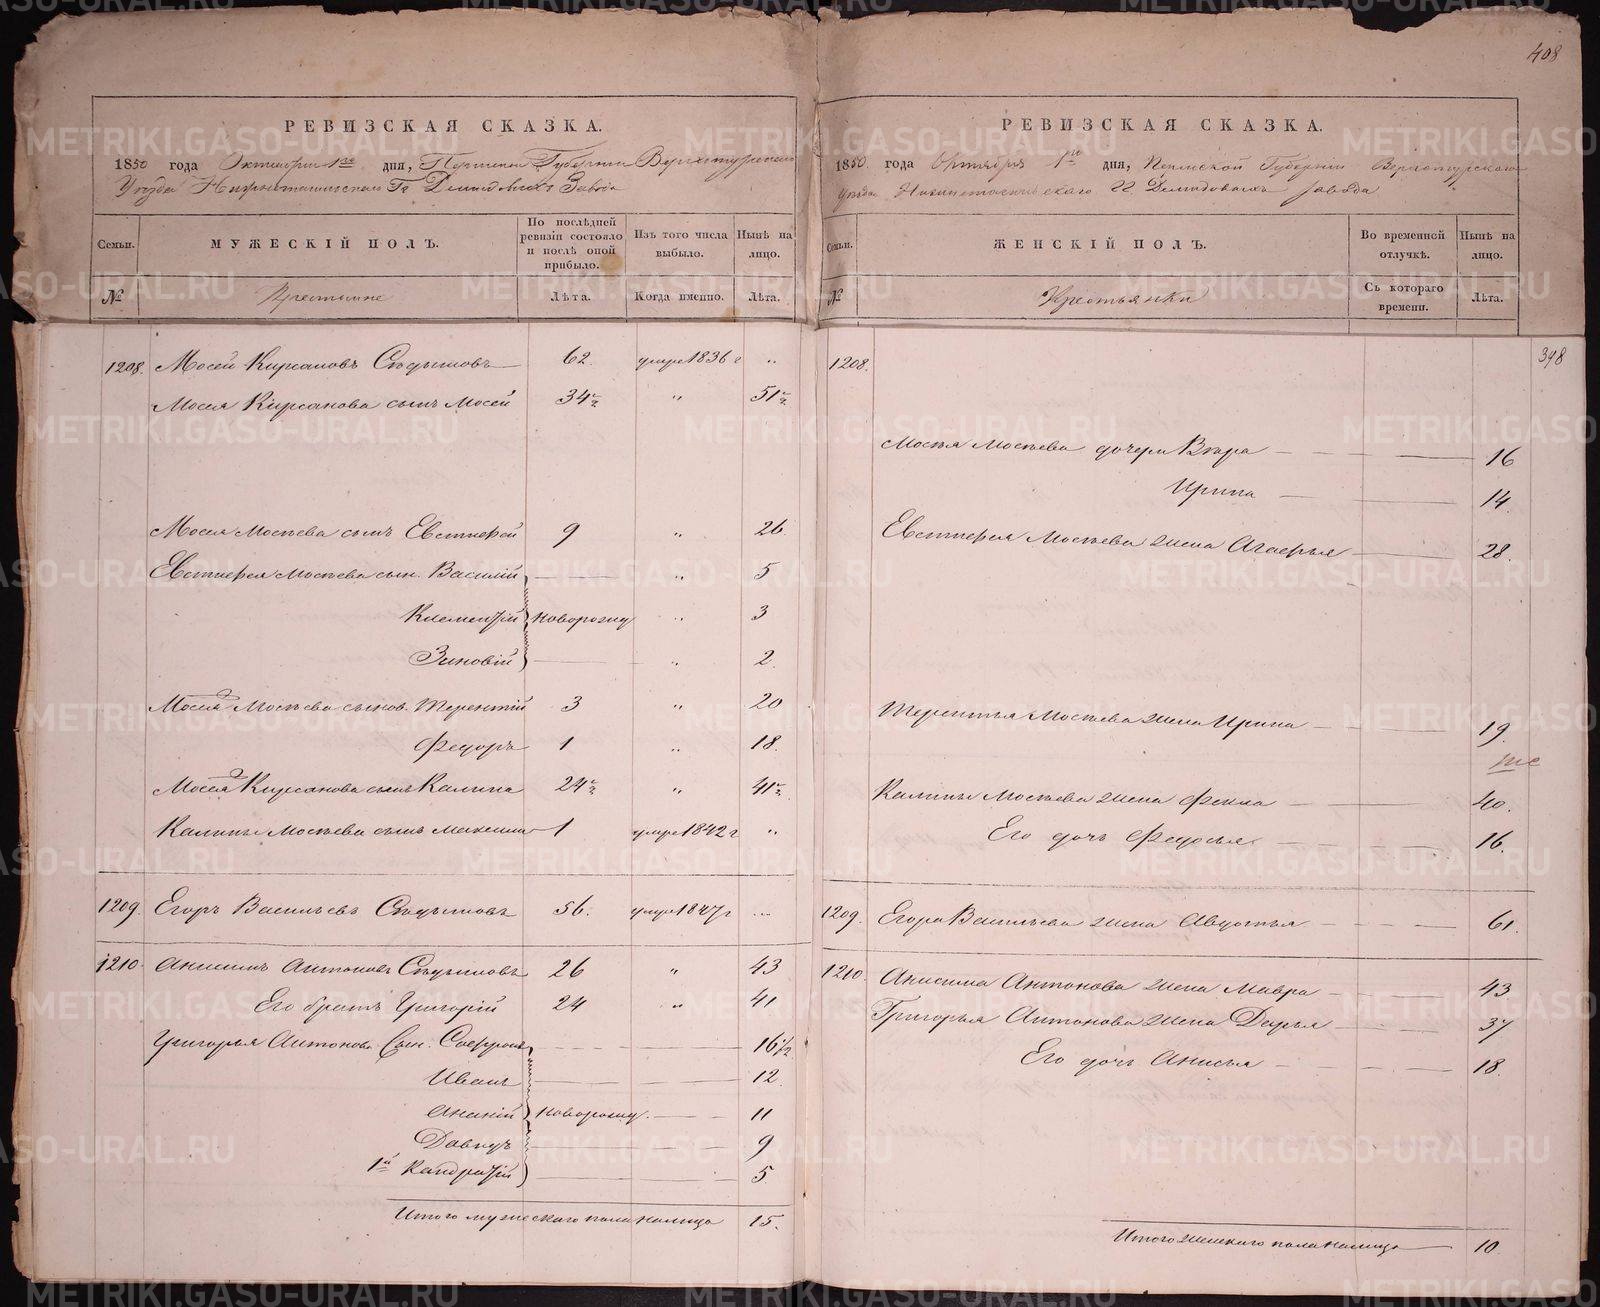 408
РЕВИЗСКАЯ СКАЗКА.
1850 года Октября 1го дня, Пермской Губернии Верхотурского
Уѣзда Нижнетагильского Гг Демидовыхъ Завода
Семьи. МУЖЕСКІЙ ПОЛЪ. По послѣдней ревизіи состояло и послѣ оной прибыло. Изъ того числа выбыло. Нынѣ на лицо.
№ Крестьяне Лѣта. Когда именно. Лѣта.
1208. Мосей Кирсановъ Сѣдышовъ 62. умре 1836 г "
Мосея Кирсанова сынъ Мосей 34 1/2 " 51 1/2
Мосея Мосѣева сынъ Евстифей 9 " 26.
Евстифея Мосѣева сын. Василій " 5
Климентій новорожд " 3
Зиновій " 2.
Мосея 2 Мосѣева сынов. Терентій 3 " 20
Федоръ 1 " 18.
Мосея 2 Кирсанова сынъ Калина 24 1/2 " 41 1/2
Калины Мосѣева сынъ Максимъ 1 умре 1842 г "
1209. Егоръ Васильевъ Сѣдышовъ 56. умре 1847 г ...
1210. Анисимъ Антоновъ Сѣдышовъ 26 " 43
Его братъ Григорій 24 " 41
Григорья Антонова Сын. Софронъ 16 1/2
Иванъ 12.
Ананій новорожд. 11
Давыдъ 9
1й Кандратій 5
Итого мужескаго пола налицо 15.
РЕВИЗСКАЯ СКАЗКА.
1850 года Октября 1го дня, Пермской Губерніи Верхотурскаго
Уѣзда Нижнетагильскаго ГГ Демидовыхъ завода
Семьи. ЖЕНСКІЙ ПОЛЪ. Во временной отлучкѣ. Нынѣ на лицо.
№ Крестьянки Съ котораго времени. Лѣта.
398
1208.
Мосея Мосѣева дочери Вѣра 16
Ирина 14
Евстифея Мосѣева жена Агафья 28.
Терентья Мосѣева жена Ирина 19.
Калины Мосѣева жена Фекла 40.
Его дочь Федосья 16.
1209. Егора Васильева жена Авдотья 61.
1210. Анисима Антонова жена Мавра 43
Григорья Антонова жена Дарья 37
Его дочь Анисья 18.
Итого женскаго пола налицо 10.
METRIKI.GASO-URAL.RU